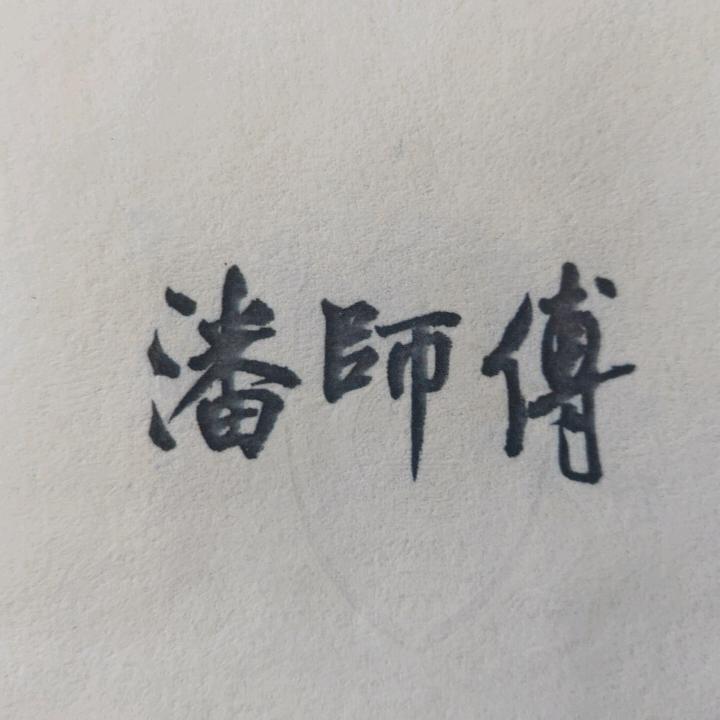 潘師傅